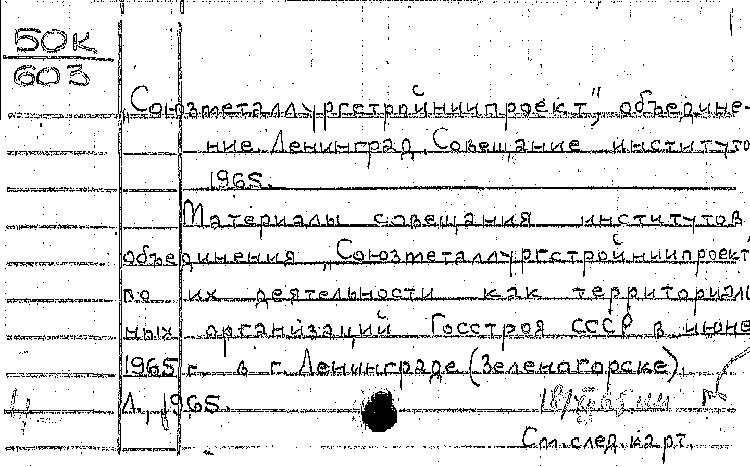 50К
603
„Союзметаллургстройниипроект", объедине-
ние. Ленинград. Совещание институто
1965.
Материалы совещания институтов
объединения „Союзметаллургстройниипроект"
по их деятельности как территориаль
ных организаций Госстроя СССР в июне
1965 г. в г. Ленинграде (Зеленогорске).
Л., 1965.
См. след. карт.